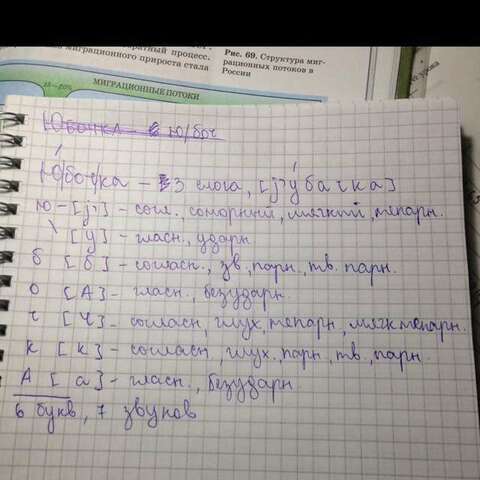 ратный процесс.
миграционного прироста стала
Рис. 69. Структура миг-
рационных потоков в
России
МИГРАЦИОННЫЕ ПОТОКИ
Юбочка - Ю/боч
Ю/боч/ка - 3 слога, [j'убачка]
ю - [j'] - согл., сонорный, мягкий, непарн.
\ [у] - гласн., ударн.
б [б] - согласн., зв., парн., тв. парн.
о [А] - гласн., безударн.
ч [ч'] - согласн., глух., непарн., мягк непарн.
к [к] - согласн., глух., парн., тв., парн.
А [а] - гласн., безударн.
6 букв, 7 звуков